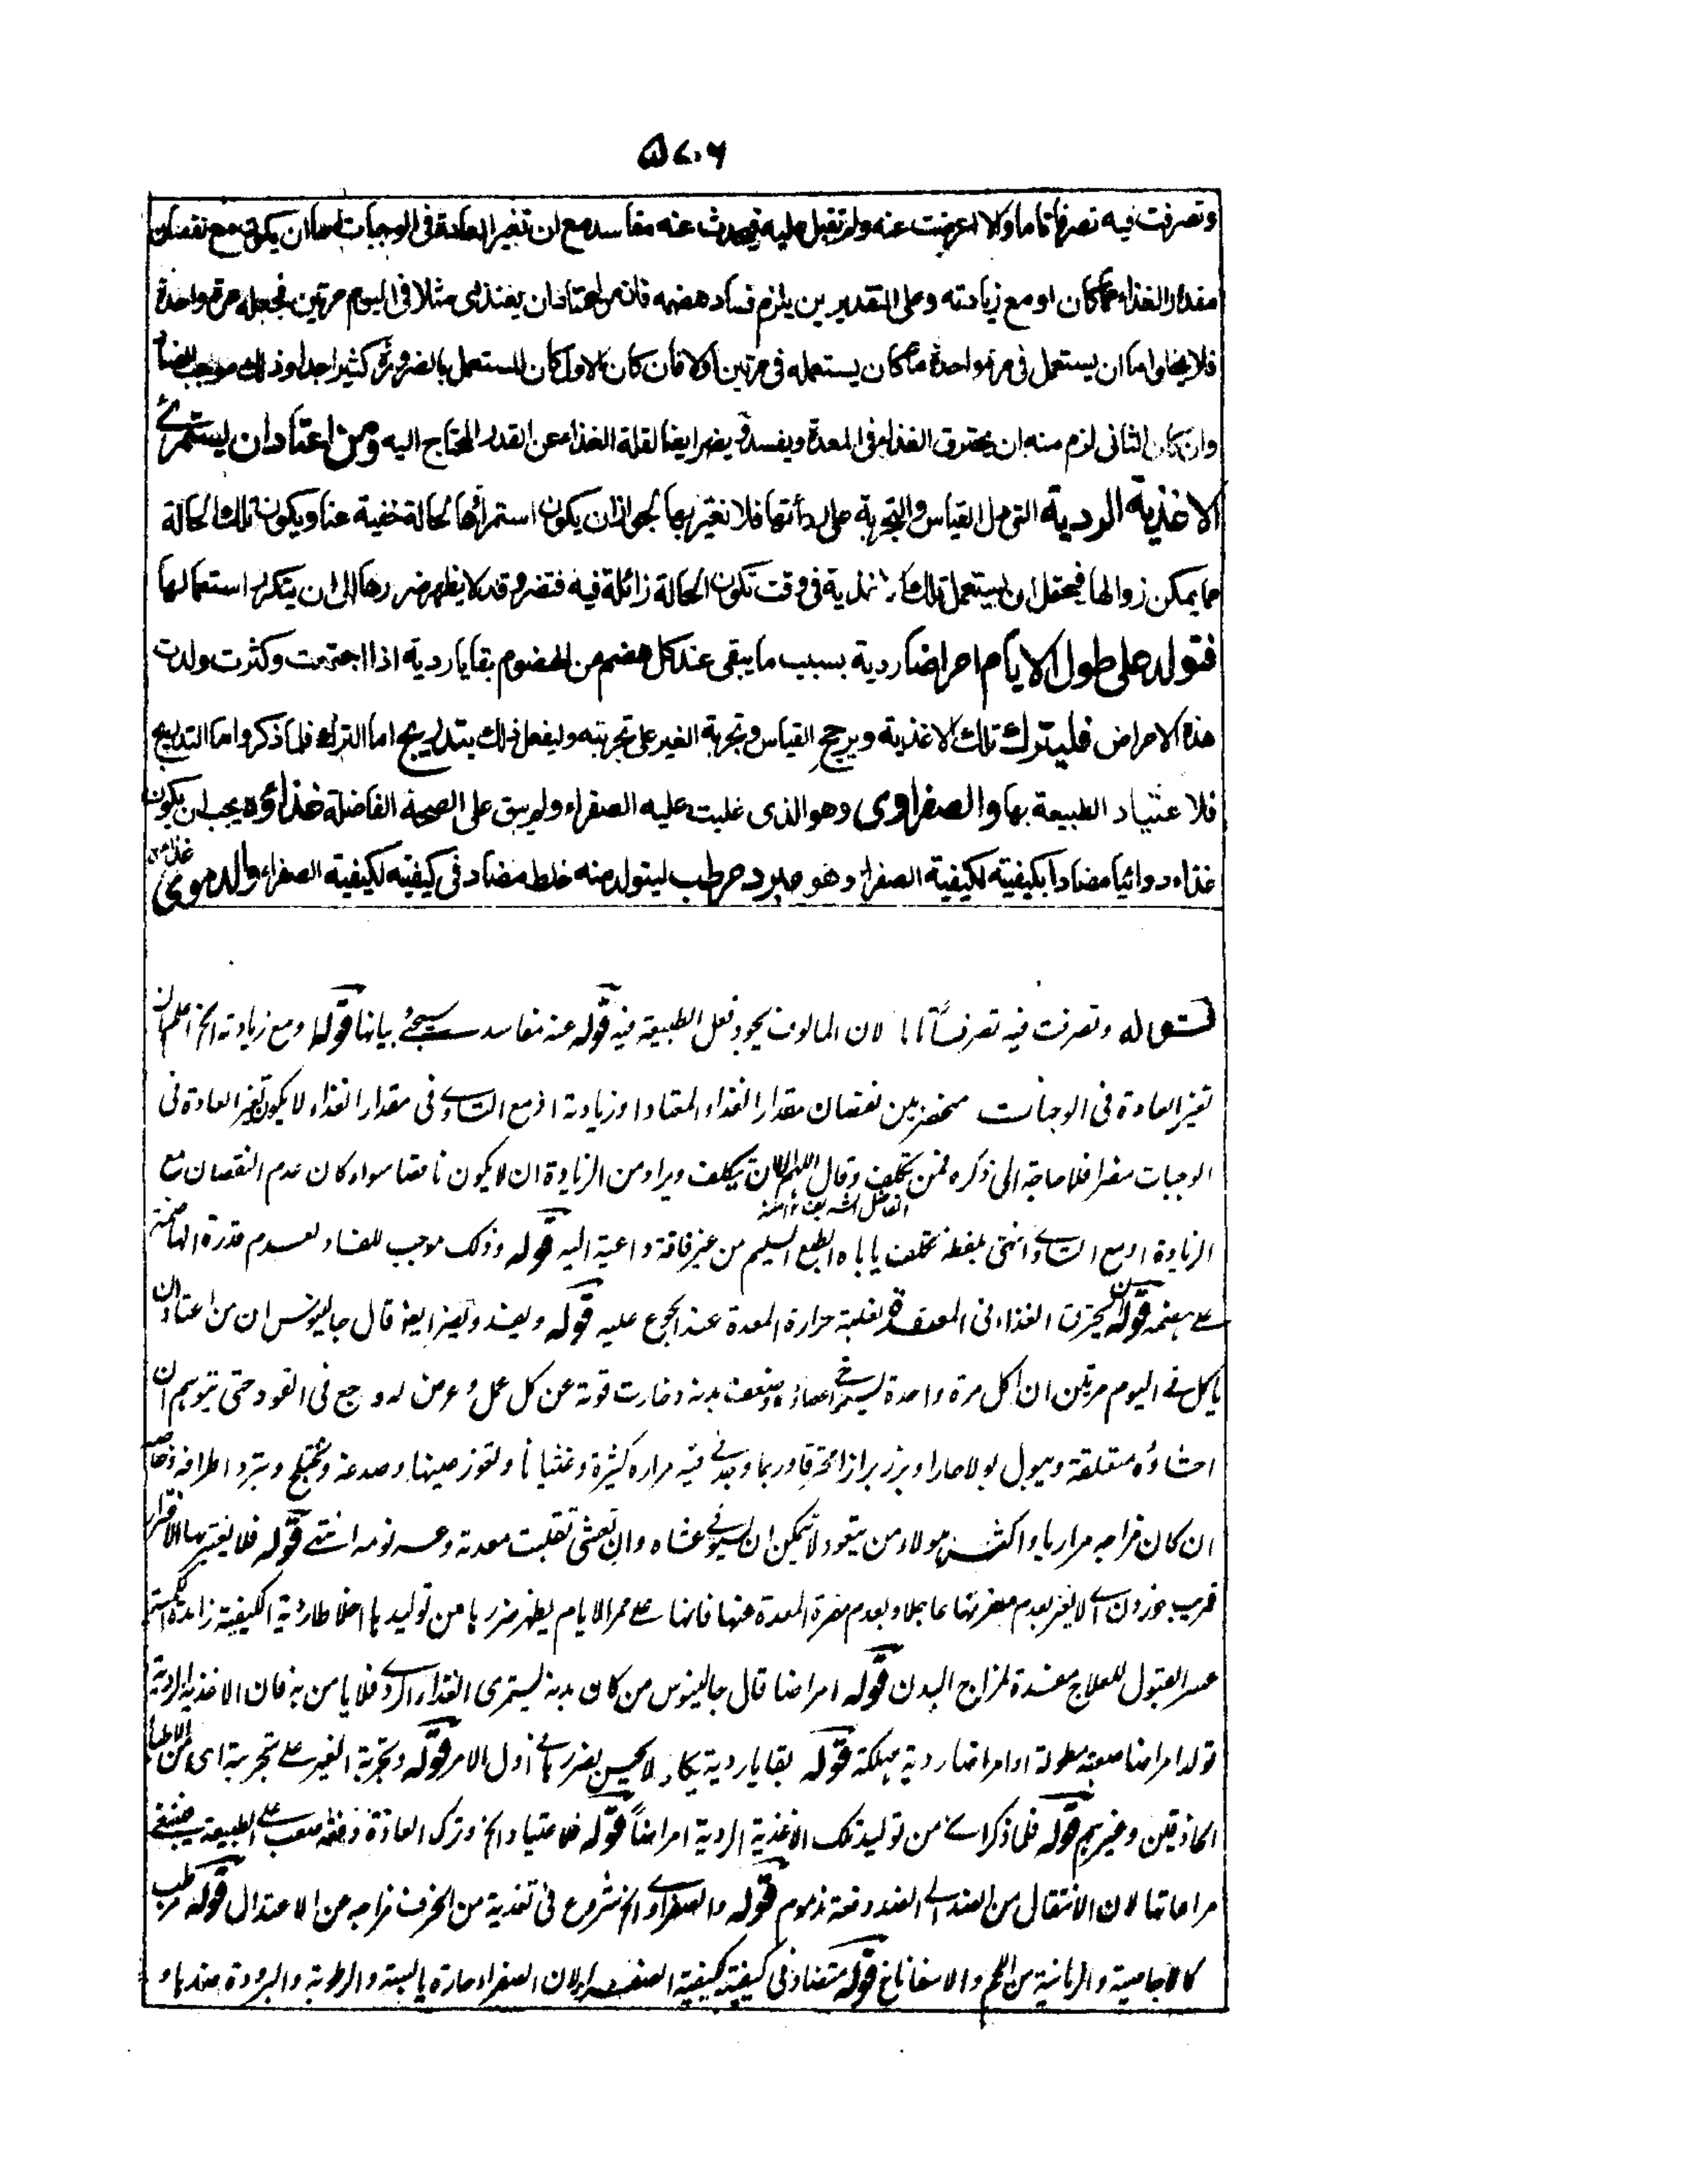 ۵۷۰۶
وتصرفت فيه تصرفا تاما والا اعرضت عنه ولم تقبل عليه فيحدث عنه مفاسد مع ان تغير العادة فى الوجبات اما ان يكون مع نقصان
مقدار الغذاء عما كان او مع زيادته وعلى التقديرين يلزم فساد هضمه فان من اعتاد ان يغتذى مثلا فى اليوم مرتين فجعله مرة واحدة
فلا يخلوا اما ان يستعمل فى مرة واحدة ما كان يستعمله فى مرتين اولا فان كان الاول كان المستعمل بالضرورة كثيرا جدا وذلك موجب للفساد
وان كان الثانى لزم منه ان يحترق الغذاء فى المعدة ويفسد و يضر ايضا لقلة الغذاء عن القدر المحتاج اليه ومن اعتاد ان يستمرئ
الاغذية الردية التى دل القياس والتجربة على ردأتها فلا نغتر بها لجواز ان يكون استمراؤها لحالة خفية عنا ويكون تلك الحالة
مما يمكن زوالها فيحتمل ان يستعمل تلك الاغذية فى وقت تكون الحالة زائلة فيه فتضر وقد لا يظهر ضررها الى ان يتكرر استعمالها
فتولد على طول الايام امراضا ردية بسبب ما يبقى عند كل هضم من الهضوم بقايا ردية اذا اجتمعت وكثرت ولدت
هذه الامراض فليترك تلك الاغذية ويرجح القياس وتجربة الغير على تجربته وليفعل ذلك بتدريج اما الترك فلما ذكر واما التدريج
فلاعتياد الطبيعة بها والصفراوى وهو الذى غلبت عليه الصفراء ولم يبق على الصحة الفاضلة غذاؤه يجب ان يكون
غذاء دوائيا مضادا بكيفيته لكيفية الصفراء وهو مبرد مرطب ليتولد منه خلط مضاد فى كيفيته لكيفية الصفراء والدموى غذاؤه
قوله وتصرفت فيه تصرفا تاما لان المالوف يجود فعل الطبيعة فيه قوله عنه مفاسد سيجئ بيانها قوله او مع زيادته الخ اعلم ان
تغير العادة فى الوجبات منحصر بين نقصان مقدار الغذاء المعتاد او زيادته اذ مع التساوى فى مقدار الغذاء لا يكون تغير العادة فى
الوجبات مضرا فلا حاجة الى ذكره فمن تكلف وقال اللهم الا ان يتكلف ويراد من الزيادة ان لا يكون ناقصا سواء كان عدم النقصان مع
الزيادة او مع التساوى انتهى بلفظه تكلف ياباه الطبع السليم من غير فاقة داعية اليه قوله وذلك موجب للفساد لعدم قدرة الهاضمة
على هضمه قوله يحترق الغذاء فى المعدة لغلبة حرارة المعدة عند الجوع عليه قوله ويفسد ويضر ايضا قال جالينوس ان من اعتاد ان
ياكل فى اليوم مرتين ان اكل مرة واحدة يسترخى اعضاؤه وضعف بدنه وخارت قوته عن كل عمل وعرض له وجع فى الفؤاد حتى يتوهم ان
احشاؤه متعلقة ويبول بولا حارا ويبرز برازا محترقا وربما وجد فى فيه مرارة كثيرة وغثيانا وتغور عيناه وصدغه وتختلج وتبرد اطرافه وخاصة
ان كان مزاجه مراريا واكثر هولاء من يتعود لا يمكن ان يستوفى عشاه وان تعشى تقلبت معدته وعسر نومه انتهى قوله فلا يغتر بها الاغترار
فريب خوردن اى لا يغتر بعدم مضرتها عاجلا وبعدم مضرة المعدة عنها فانها على ممر الايام يظهر ضررها من توليدها اخلاطا ردية الكيفية زايدة الكمية
عسر القبول للعلاج مفسدة لمزاج البدن قوله امراضا قال جالينوس من كان بدنه يستمرى الغذاء الردى فلا يامن به فان الاغذية الردية
تولد امراضا صعبة مطولة او امراضا ردية مهلكة قوله بقايا ردية يكاد لا يحس بضررها فى اول الامر قوله وتجربة الغير على تجربته اى من الاطباء
الحاذقين وغيرهم قوله فلما ذكر اى من توليد تلك الاغذية الردية امراضا قوله فلاعتياد الخ وترك العادة دفعة صعب على الطبيعة فينبغى
مراعاتها لان الانتقال من الضد الى الضد دفعة مذموم قوله والصفراوى الخ شروع فى تغذية من انحرف مزاجه عن الاعتدال قوله مرطب
كالاجاصية والرمانية من اللحم والاسفاناخ قوله متضاد فى كيفيته لكيفية الصفراء لان الصفراء حارة يابسة والرطوبة والبرودة ضدها و